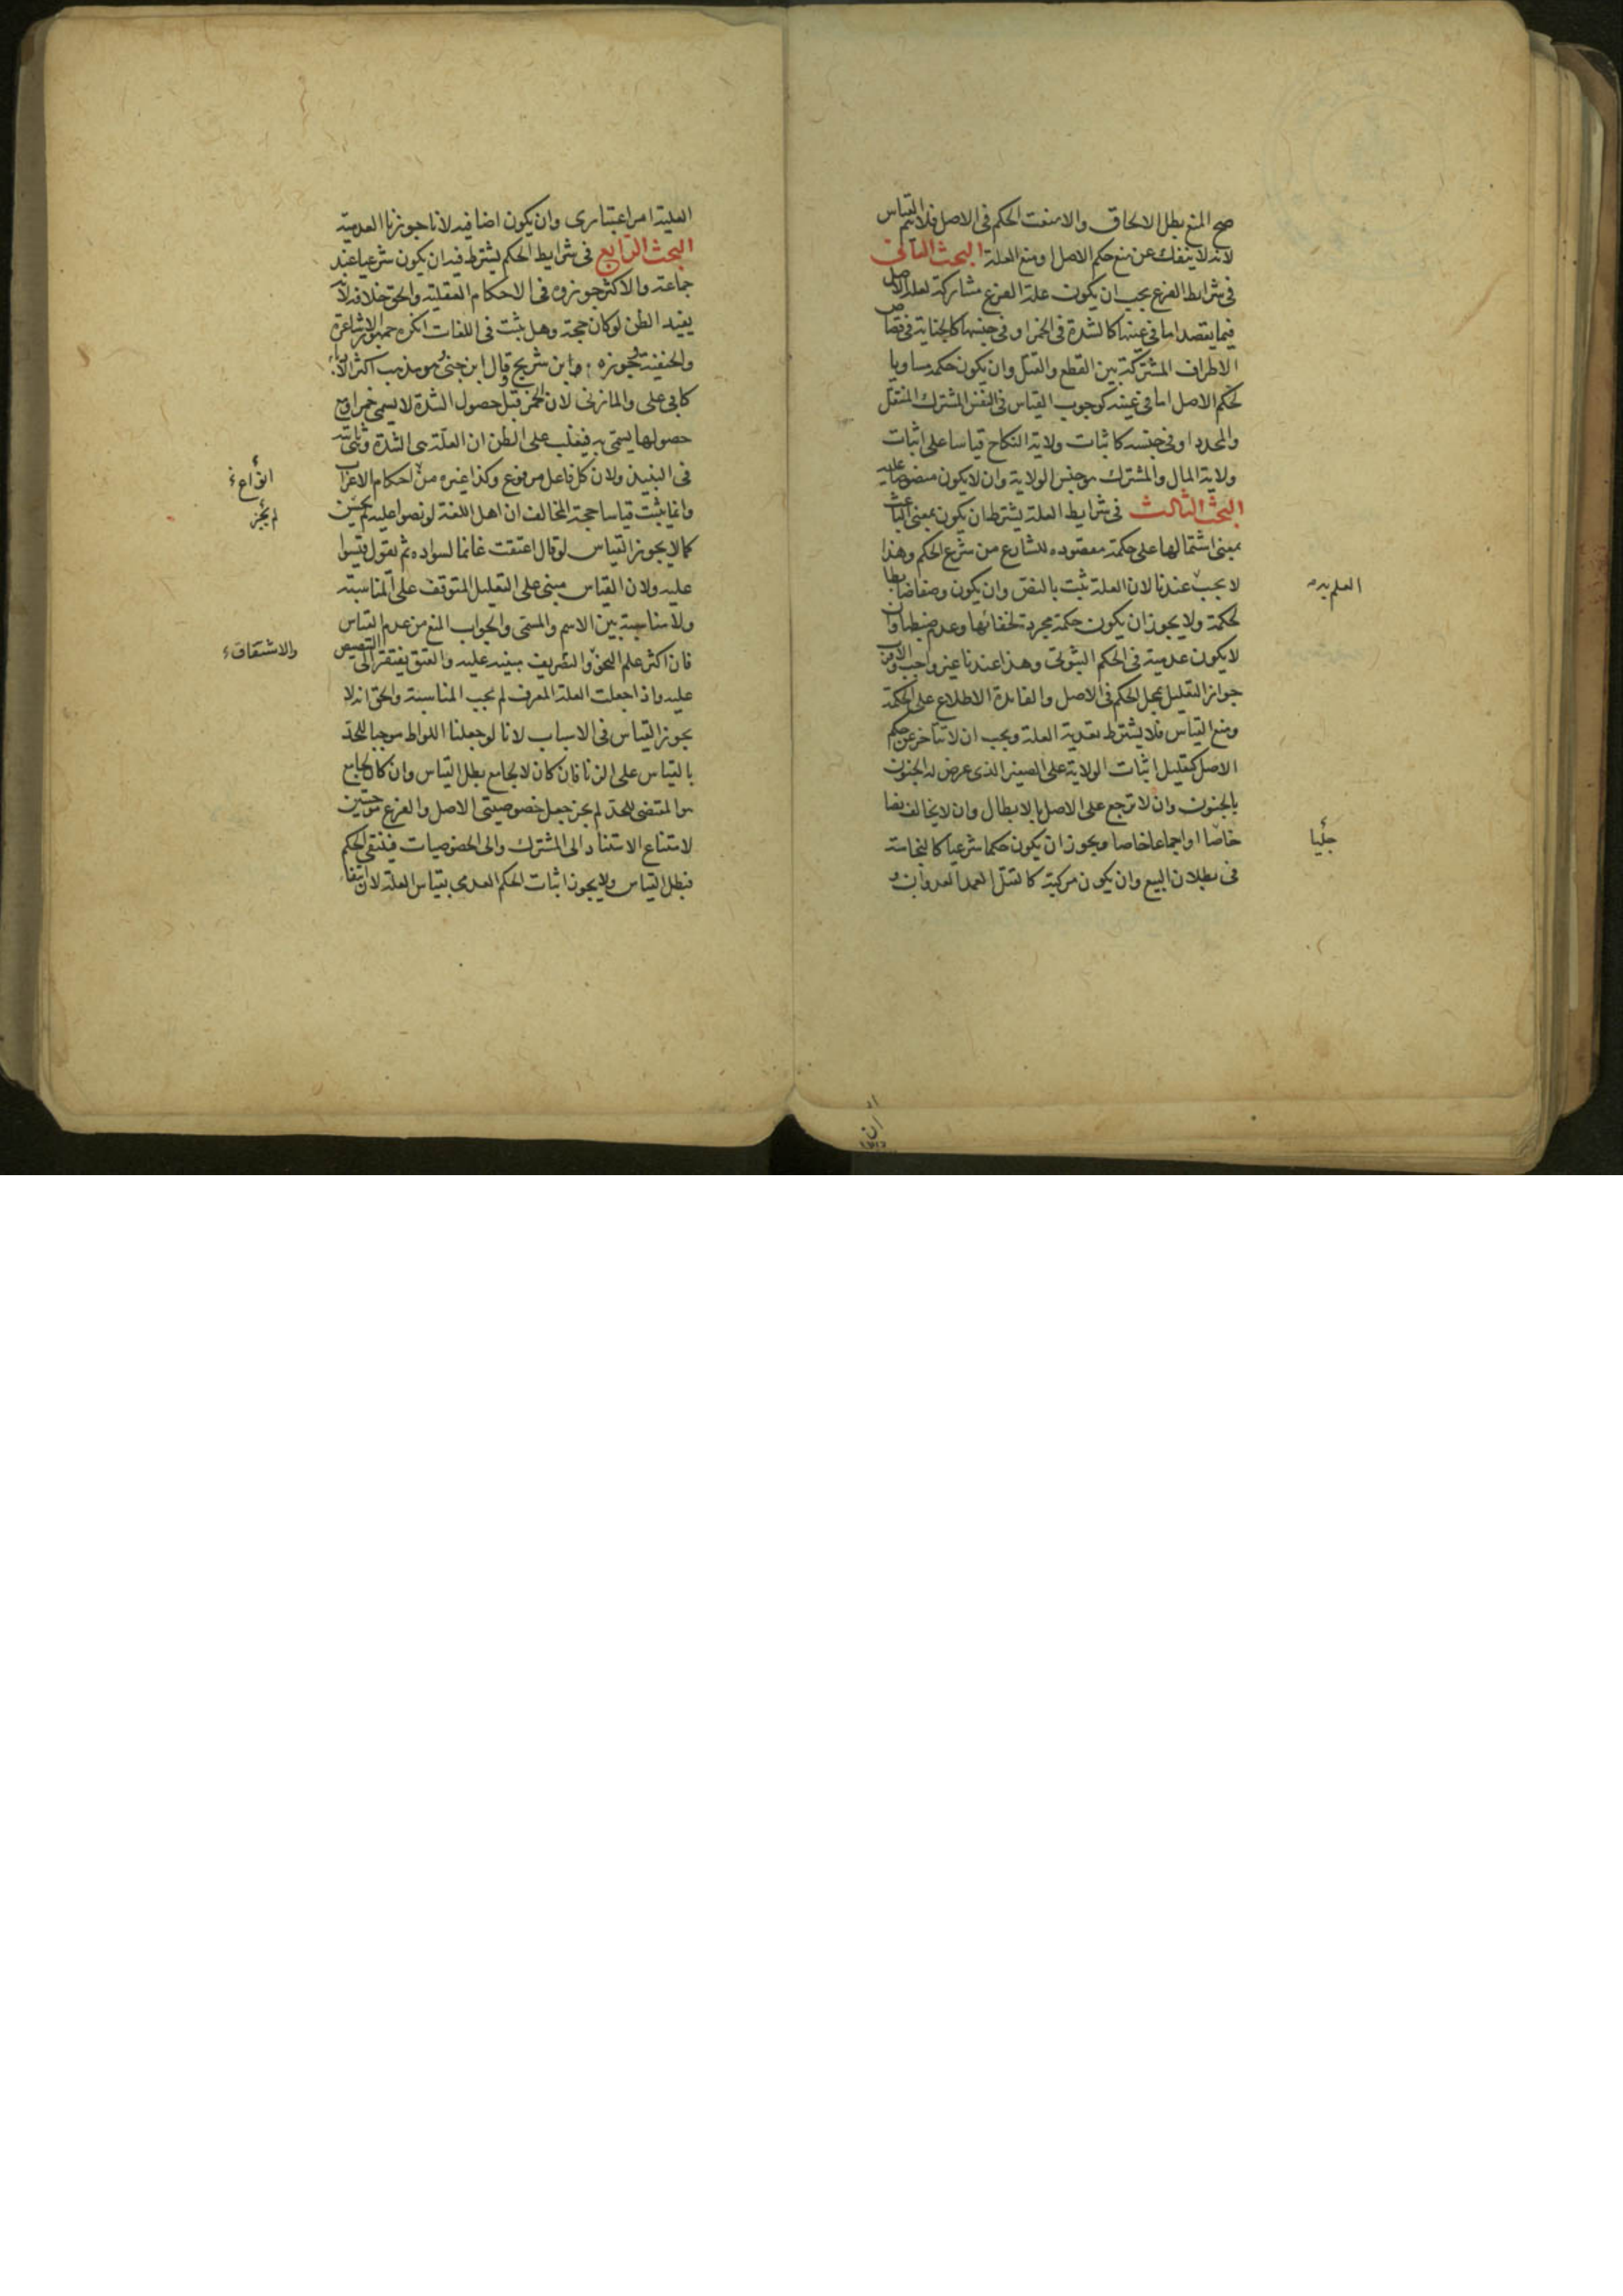 صح المنع بطل الالحاق والا منعت الحكم فى الاصل فلا يتم القياس
لانه لا ينفك عن منع حكم الاصل او منع العلة البحث الثانى
فى شرائط الفرع يجب ان يكون علة الفرع مشاركة لعلة الاصل
فيما يقصد اما فى عينها كالشدة فى الخمر او فى جنسها كالجناية فى قصاص
الاطراف المشتركة بين القطع والقتل وان يكون حكمه مساويا
لحكم الاصل اما فى عينه كوجوب القياس فى النفس المشترك المثقل
والمحدد او فى جنسه كاثبات ولاية النكاح قياسا على اثبات
ولاية المال والمشترك هو جنس الولاية وان لا يكون منصوصا عليه
البحث الثالث فى شرايط العلة يشترط ان يكون بمعنى الباعث
بمعنى اشتمالها على حكمة مقصوده للشارع من شرع الحكم وهذا
لا يجب عندنا لان العلة تثبت بالنص وان يكون وصفا ضابطا
لحكمة ولا يجوز ان يكون حكمة مجردة لخفائها وعدم ضبطها وان
لا يكون عدمية فى الحكم الثبوتى وهذا عندنا غير واجب والاقرب
جواز التعليل بمحل الحكم فى الاصل والفائدة الاطلاع على الحكمة
ومنع القياس فلا يشترط تعدية العلة ويجب ان لا تتاخر عن حكم
الاصل كتعليل اثبات الولاية على الصغير الذى عرض له الجنون
بالجنون وان لا ترجع على الاصل بالابطال وان لا يخالف نصا
خاصا او اجماعا خاصا ويجوز ان يكون حكما شرعيا كالنجاسة
فى بطلان البيع وان يكون مركبة كالقتل العمد العدوان و
جليا
العلية امر اعتبارى وان يكون اضافية لانا جوزنا العدمية
البحث الرابع فى شرايط الحكم يشترط فيه ان يكون شرعيا عند
جماعة والاكثر جوزوه فى الاحكام العقلية والحق خلافه لانه
يفيد الظن لو كان حجة وهل يثبت فى اللغات انكره جمهور الاشاعرة
والحنفية وجوزه ابن شريح وقال ابن جنى هو مذهب اكثر الادباء
كابى على والمازنى لان الخمر قبل حصول الشدة لا يسمى خمرا ومع
حصولها يسمى به فيغلب على الظن ان العلة هى الشدة وثابتة
فى النبيذ ولان كل فاعل مرفوع وكذا غيره من احكام الاعراب
وانما يثبت قياسا حجة المخالف ان اهل اللغة لو نصوا عليه لم يحسن
كما لا يجوز القياس لو قال اعتقت غانما لسواده ثم يقول قيسوا
عليه ولان القياس مبنى على التعليل المتوقف على المناسبة
ولا مناسبة بين الاسم والمسمى والجواب المنع من عدم القياس
فان اكثر علم النحو والتصريف مبنيه عليه والعتق يفتقر الى التنصيص
عليه واذا جعلت العلة المعرف لم يجب المناسبة والحق انه لا
يجوز القياس فى الاسباب لانا لو جعلنا اللواط موجبا للحد
بالقياس على الزنا فان كان لا بجامع بطل القياس وان كان بجامع
هو المقتضى للحد لم يجز جعل خصوصيتى الاصل والفرع موجبتين
لامتناع الاستناد الى المشترك والى الخصوصيات فينتفى الحكم
فبطل القياس ولا يجوز اثبات الحكم العدمى بقياس العلة لان انتفا
انواع
لم يجز
والاشتقاق